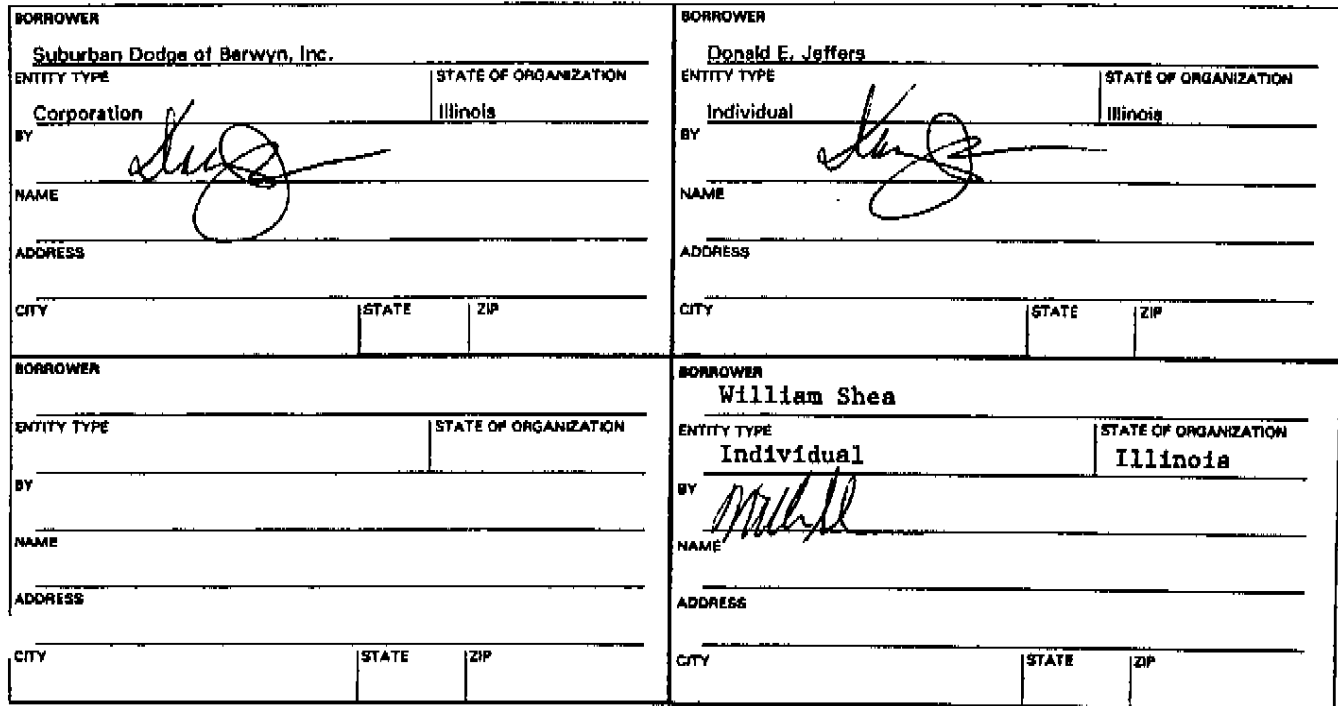 BORROWER
Suburban Dodge of Berwyn, Inc.
ENTITY TYPE STATE OF ORGANIZATION
Corporation Illinois
BY
NAME
ADDRESS
CITY STATE ZIP
BORROWER
Donald E. Jeffers
ENTITY TYPE STATE OF ORGANIZATION
Individual Illinois
BY
NAME
ADDRESS
CITY STATE ZIP
BORROWER
ENTITY TYPE STATE OF ORGANIZATION
BY
NAME
ADDRESS
CITY STATE ZIP
BORROWER
William Shea
ENTITY TYPE STATE OF ORGANIZATION
Individual Illinois
BY
NAME
ADDRESS
CITY STATE ZIP